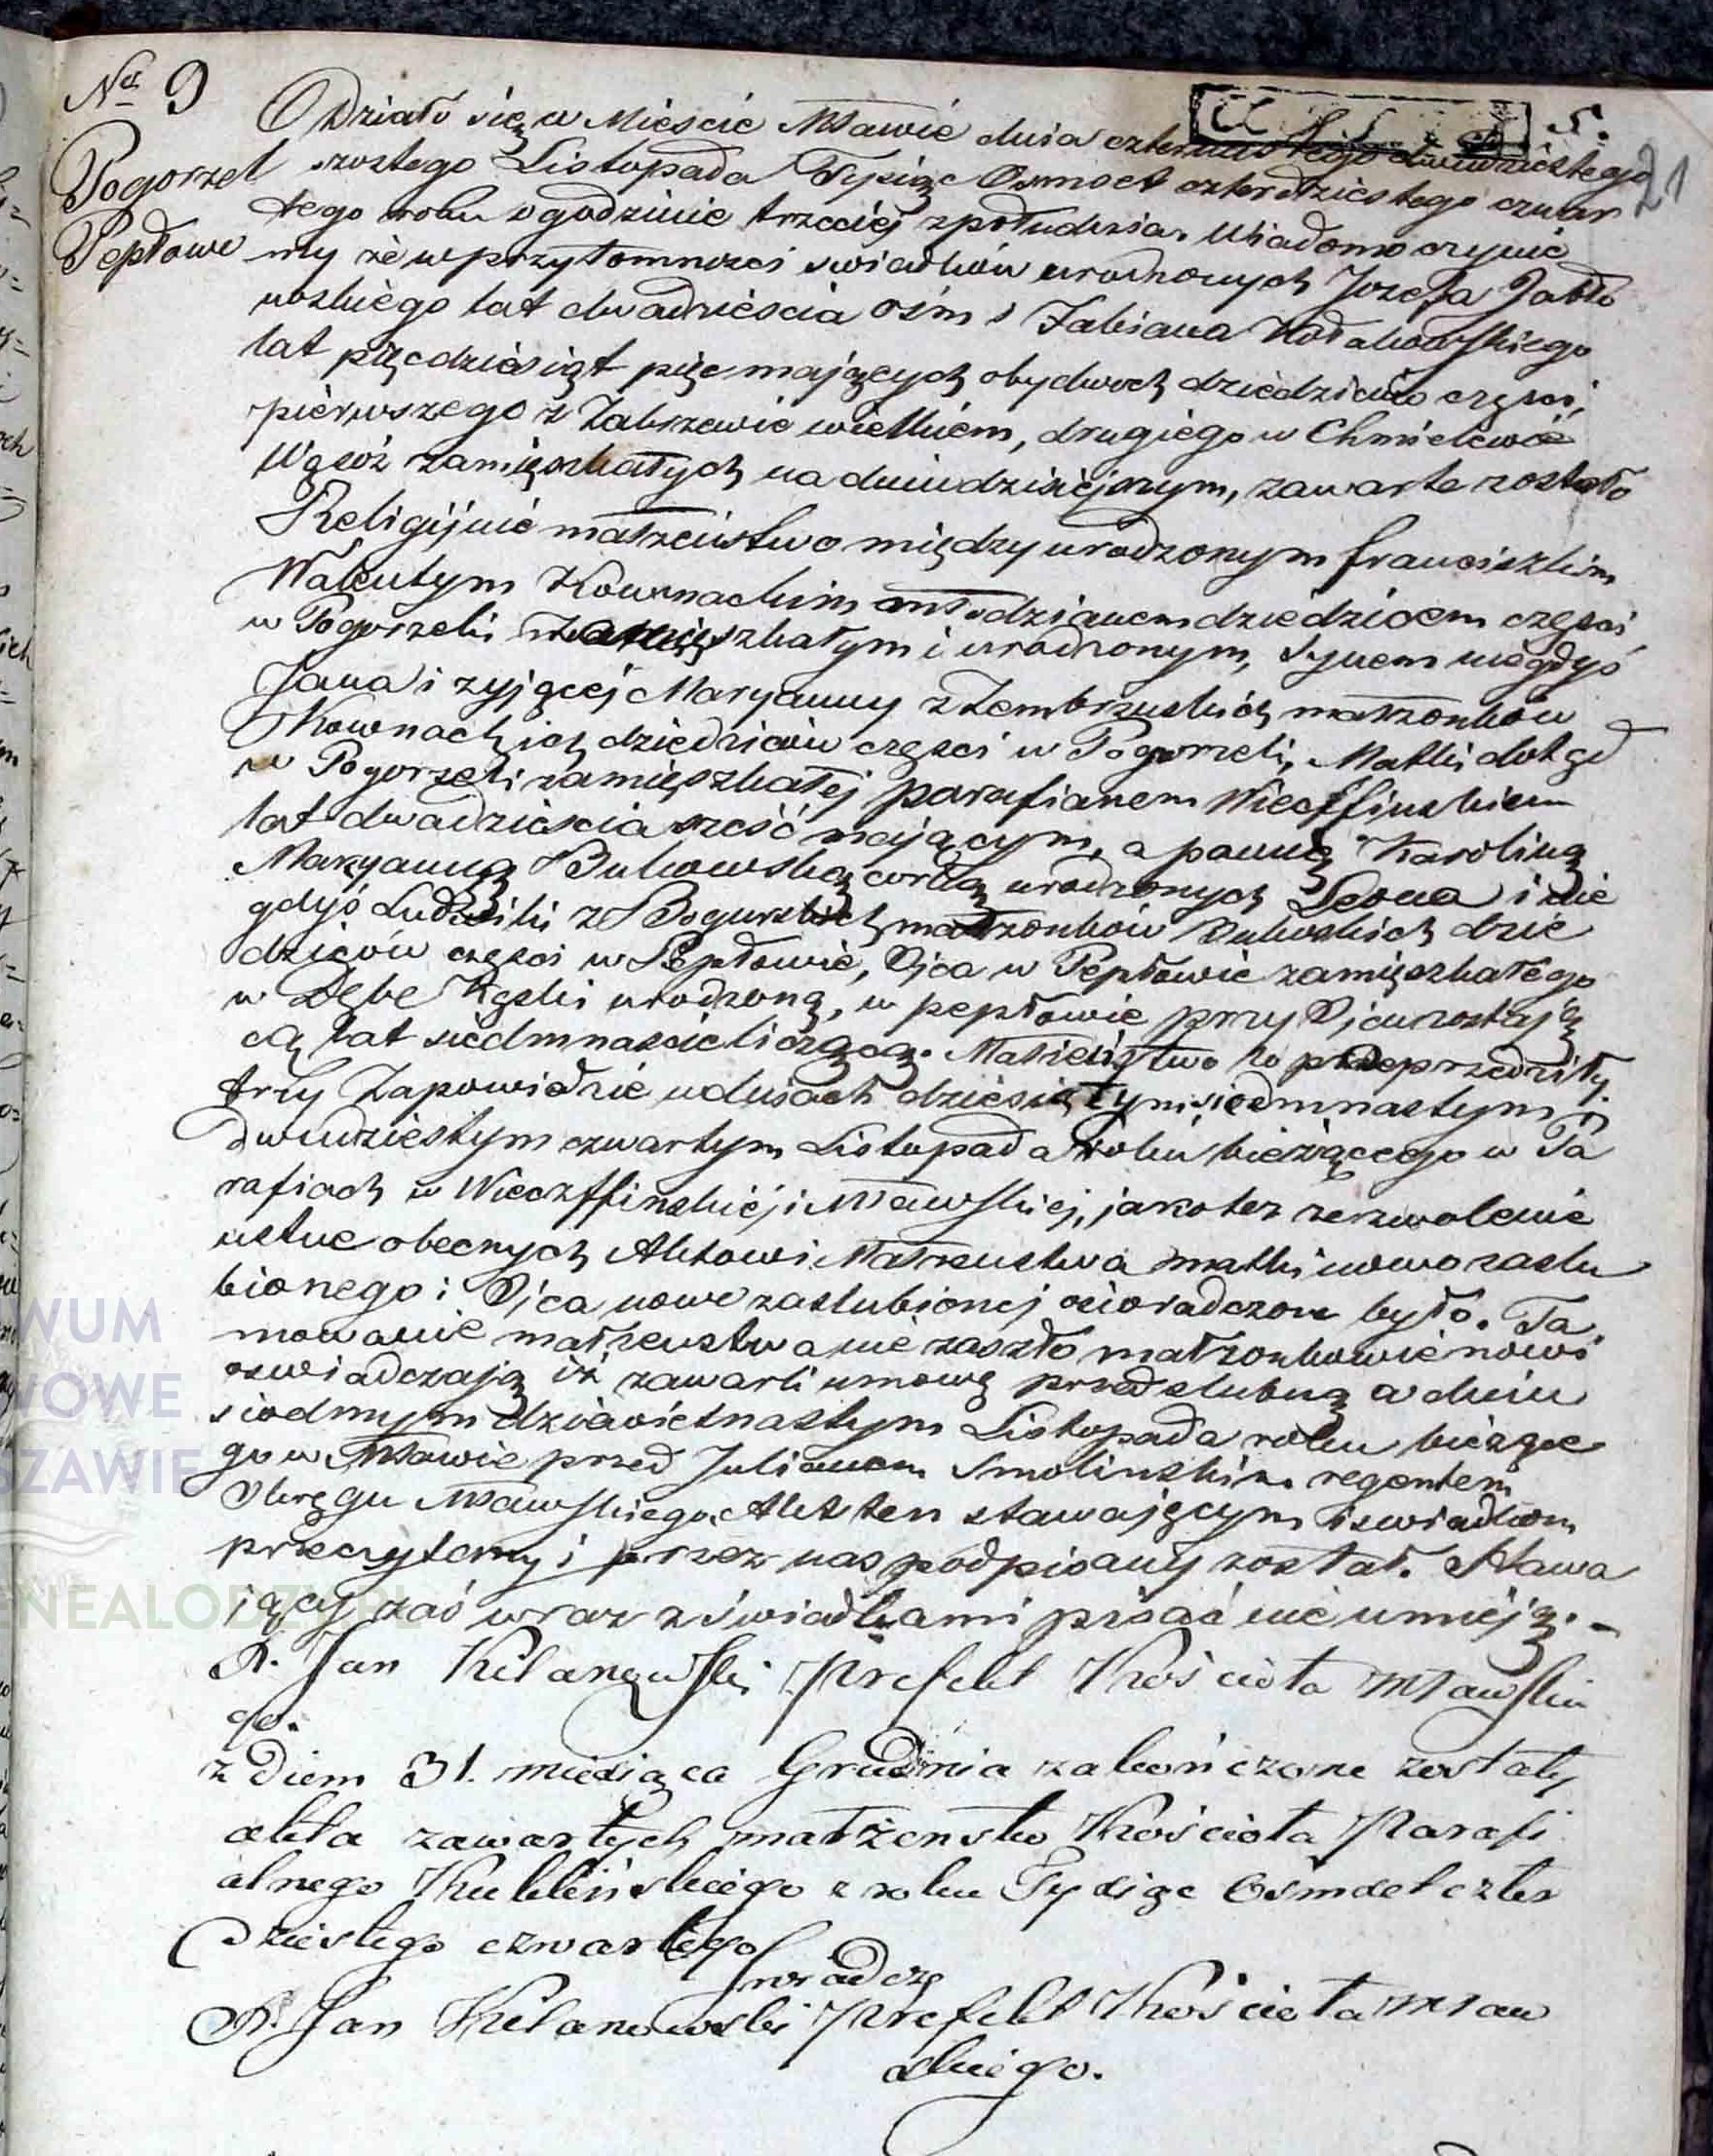 No 9
Pogorzel
Pepłowo
Działo się w Mieście Mławie dnia czternastego dwudziestego
szostego Listopada Tysiąc Osmset czterdziestego czwar
tego roku o godzinie trzeciej z południa. Wiadomo czynie
my że w przytomnosci swiadków urodzonych Jozefa Jabło
noskiego lat dwadziescia ośm i Fabiana Kołakowskiego
lat pięcdziesiąt pięc mających obydwoch dziedziców częsci,
pierwszego z Zakrzewie wielkiem, drugiego w Chmielewie
zamięszkałych na dniu dzisiejszym, zawarte zostało
Religijnie małzeństwo między urodzonym franciszkim
Walentym Kownackim młodzianem dziedzicem częsci
w Pogorzeli zamięszkałym i urodzonym, synem niegdys
Jana i zyjącej Maryanny z Zembrzuskich małzonków
Kownackich dziedziców częsci w Pogorzeli, Matki dotąd
w Pogorzeli zamięszkałej parafianem Wieczffinskiem
lat dwadziescia szesć mającym, a panną Karoliną
Maryanną Bukowską corką urodzonych Leona i nie
gdyś Ludwiki z Bogurskich małzonków Bukoskich dzie
dziców częsci w Pepłowie, Ojca w Pepłowie zamięszkałego
w Dębe Kęski urodzoną, w pepłowie przy Ojcu zostają
cą lat siedmnascie liczącą. Małzeństwo to poprzedziły
trzy Zapowiedzie w dniach dziesiątym siedmnastym i
dwudziestym czwartym Listopada roku bieżącego w Pa
rafiach w Wieczffinskiej i Mławskiej, jako też zezwolenie
ustne obecnych Aktowi Małzeństwa matki nowo zaslu
bionego i Ojca nowe zaslubionej oswiadczone było. Ta
mowanie małzenstwa nie zaszło małzonkowie nowi
oswiadczają iż zawarli umowę przed slubną w dniu
siodmym dziewiętnastym Listopada roku bieżące
go w Mławie przed Julianem Smolinskim regentem
Okręgu Mławskiego. Akt ten stawającym i swiadkom
przeczytany i przez nas podpisany został. Stawa
iący zaś wraz z świadkami pisać nie umieją.-
X. Jan Kilanowski Prefekt Kościoła Mławskie
go.
z Dniem 31. miesiąca Grudnia zakończone zostały
akta zawartych małżeństw Kościoła Parafi
alnego z roku Tysiąc Ośmset czter
dziestego czwartego
Swiadczę
X. Jan Kilanowski Prefekt Kościoła Mław
skiego.
21